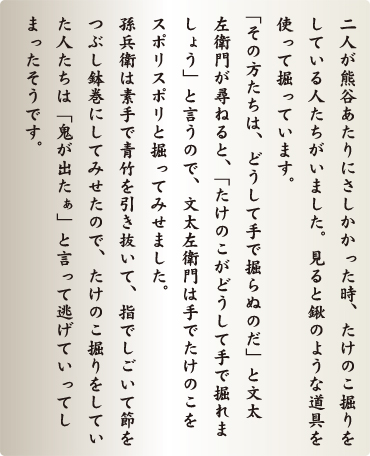 二人が熊谷あたりにさしかかった時、たけのこ掘りを
している人たちがいました。見ると鍬のような道具を
使って掘っています。
「その方たちは、どうして手で掘らぬのだ」と文太
左衛門が尋ねると、「たけのこがどうして手で掘れま
しょう」と言うので、文太左衛門は手でたけのこを
スポリスポリと掘ってみせました。
孫兵衛は素手で青竹を引き抜いて、指でしごいて節を
つぶし鉢巻にしてみせたので、たけのこ掘りをしてい
た人たちは「鬼が出たぁ」と言って逃げていってし
まったそうです。